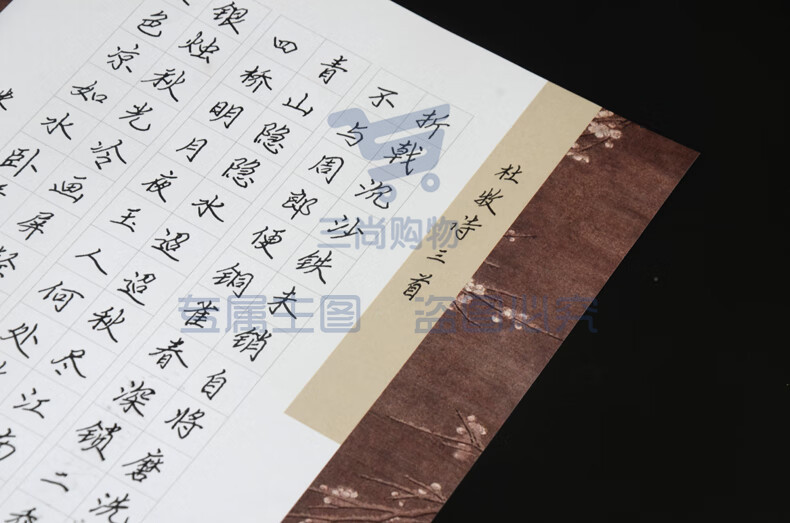 杜牧诗三首
折戟沉沙铁未销自将磨洗
不与周郎便铜雀春深锁二乔
青山隐隐水迢迢秋尽江南
四桥明月夜玉人何处
银烛秋光冷画屏
色凉如水卧
三尚购物
专属主图 盗图必究